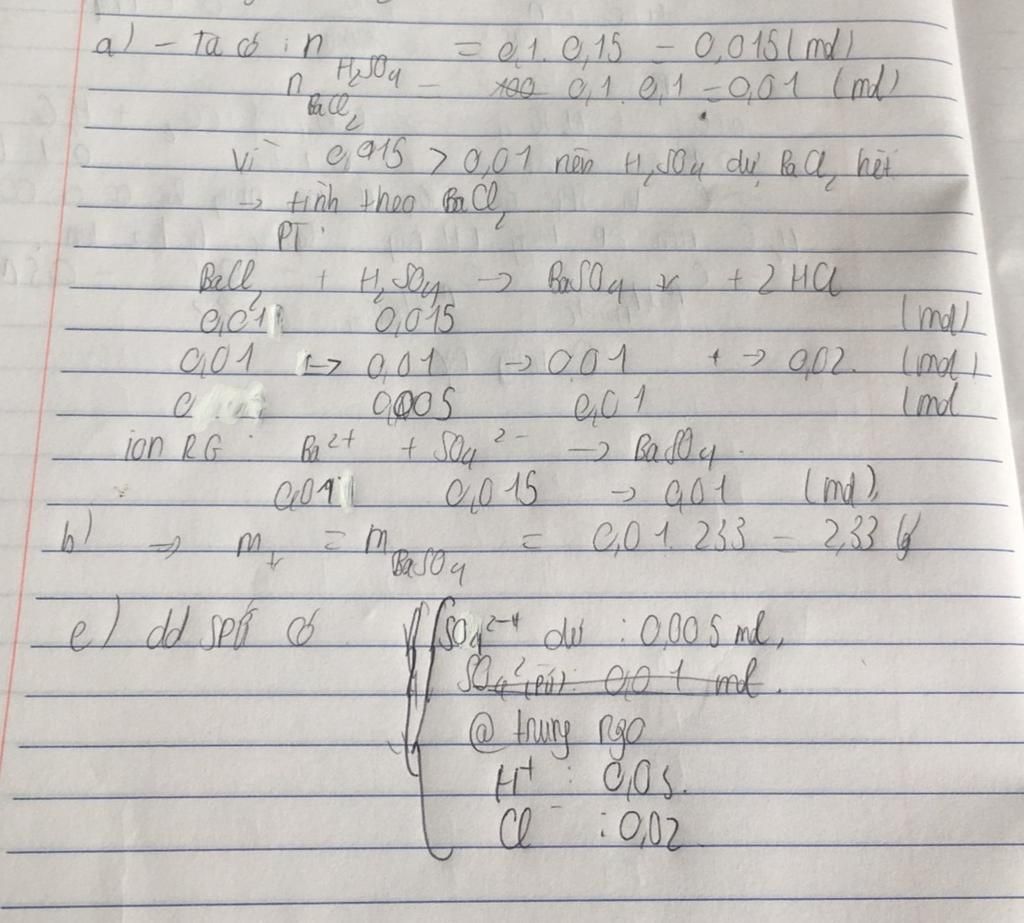 a) - Ta có : n H₂SO₄ = 0,1. 0,15 = 0,015 (mol)
n BaCl₂ = 0,1. 0,1 = 0,01 (mol)
Vì 0,015 > 0,01 nên H₂SO₄ dư, BaCl₂ hết
→ tính theo BaCl₂
PT:
BaCl₂ + H₂SO₄ → BaSO₄ ↓ + 2 HCl
0,01 0,015 (mol)
0,01 → 0,01 → 0,01 → 0,02. (mol)
0 0,005 0,01 (mol
ion RG : Ba²⁺ + SO₄²⁻ → BaSO₄.
0,01 0,015 → 0,01 (mol)
b) ⇒ m↓ = m BaSO₄ = 0,01. 233 = 2,33 (g)
c) dd spứ có { SO₄²⁻ dư : 0,005 mol,
SO₄² (pứ): 0,01 mol.
@ trung ngo
H⁺ : 0,03.
Cl⁻ : 0,02